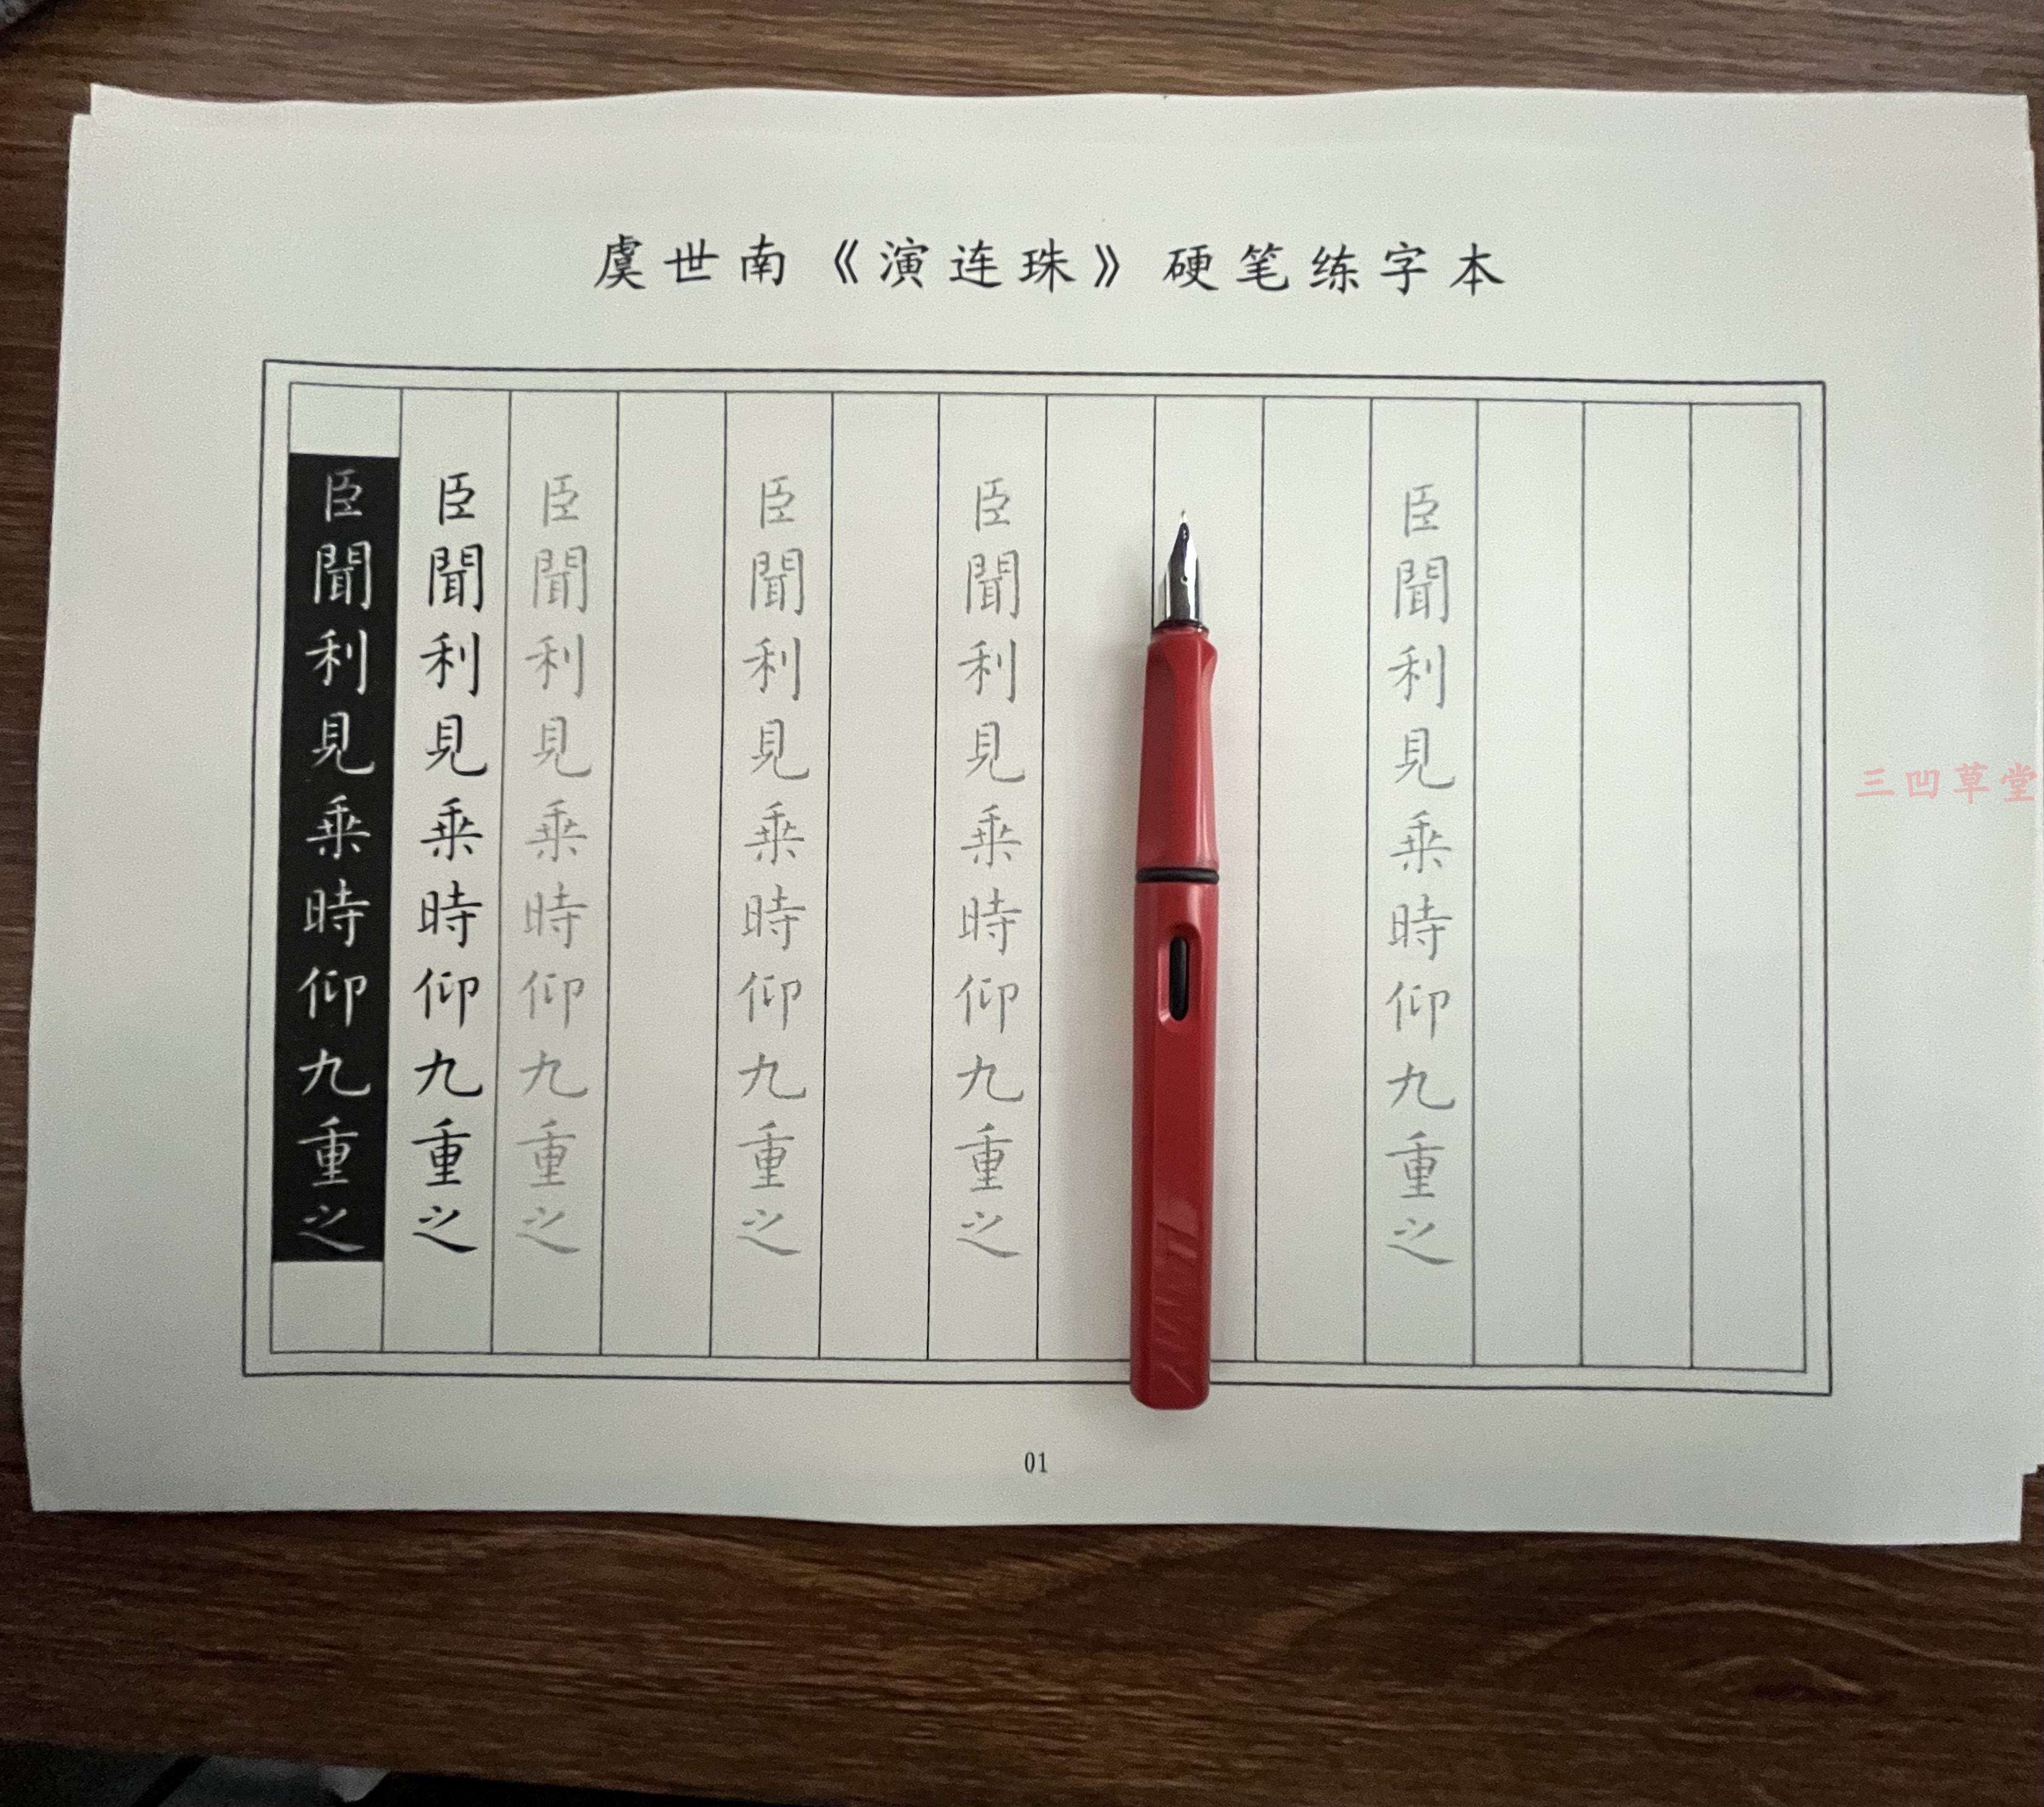 虞世南《演连珠》硬笔练字本
臣聞利見乘時仰九重之
臣聞利見乘時仰九重之
臣聞利見乘時仰九重之
臣聞利見乘時仰九重之
臣聞利見乘時仰九重之
臣聞利見乘時仰九重之
LAMY
三凹草堂
01